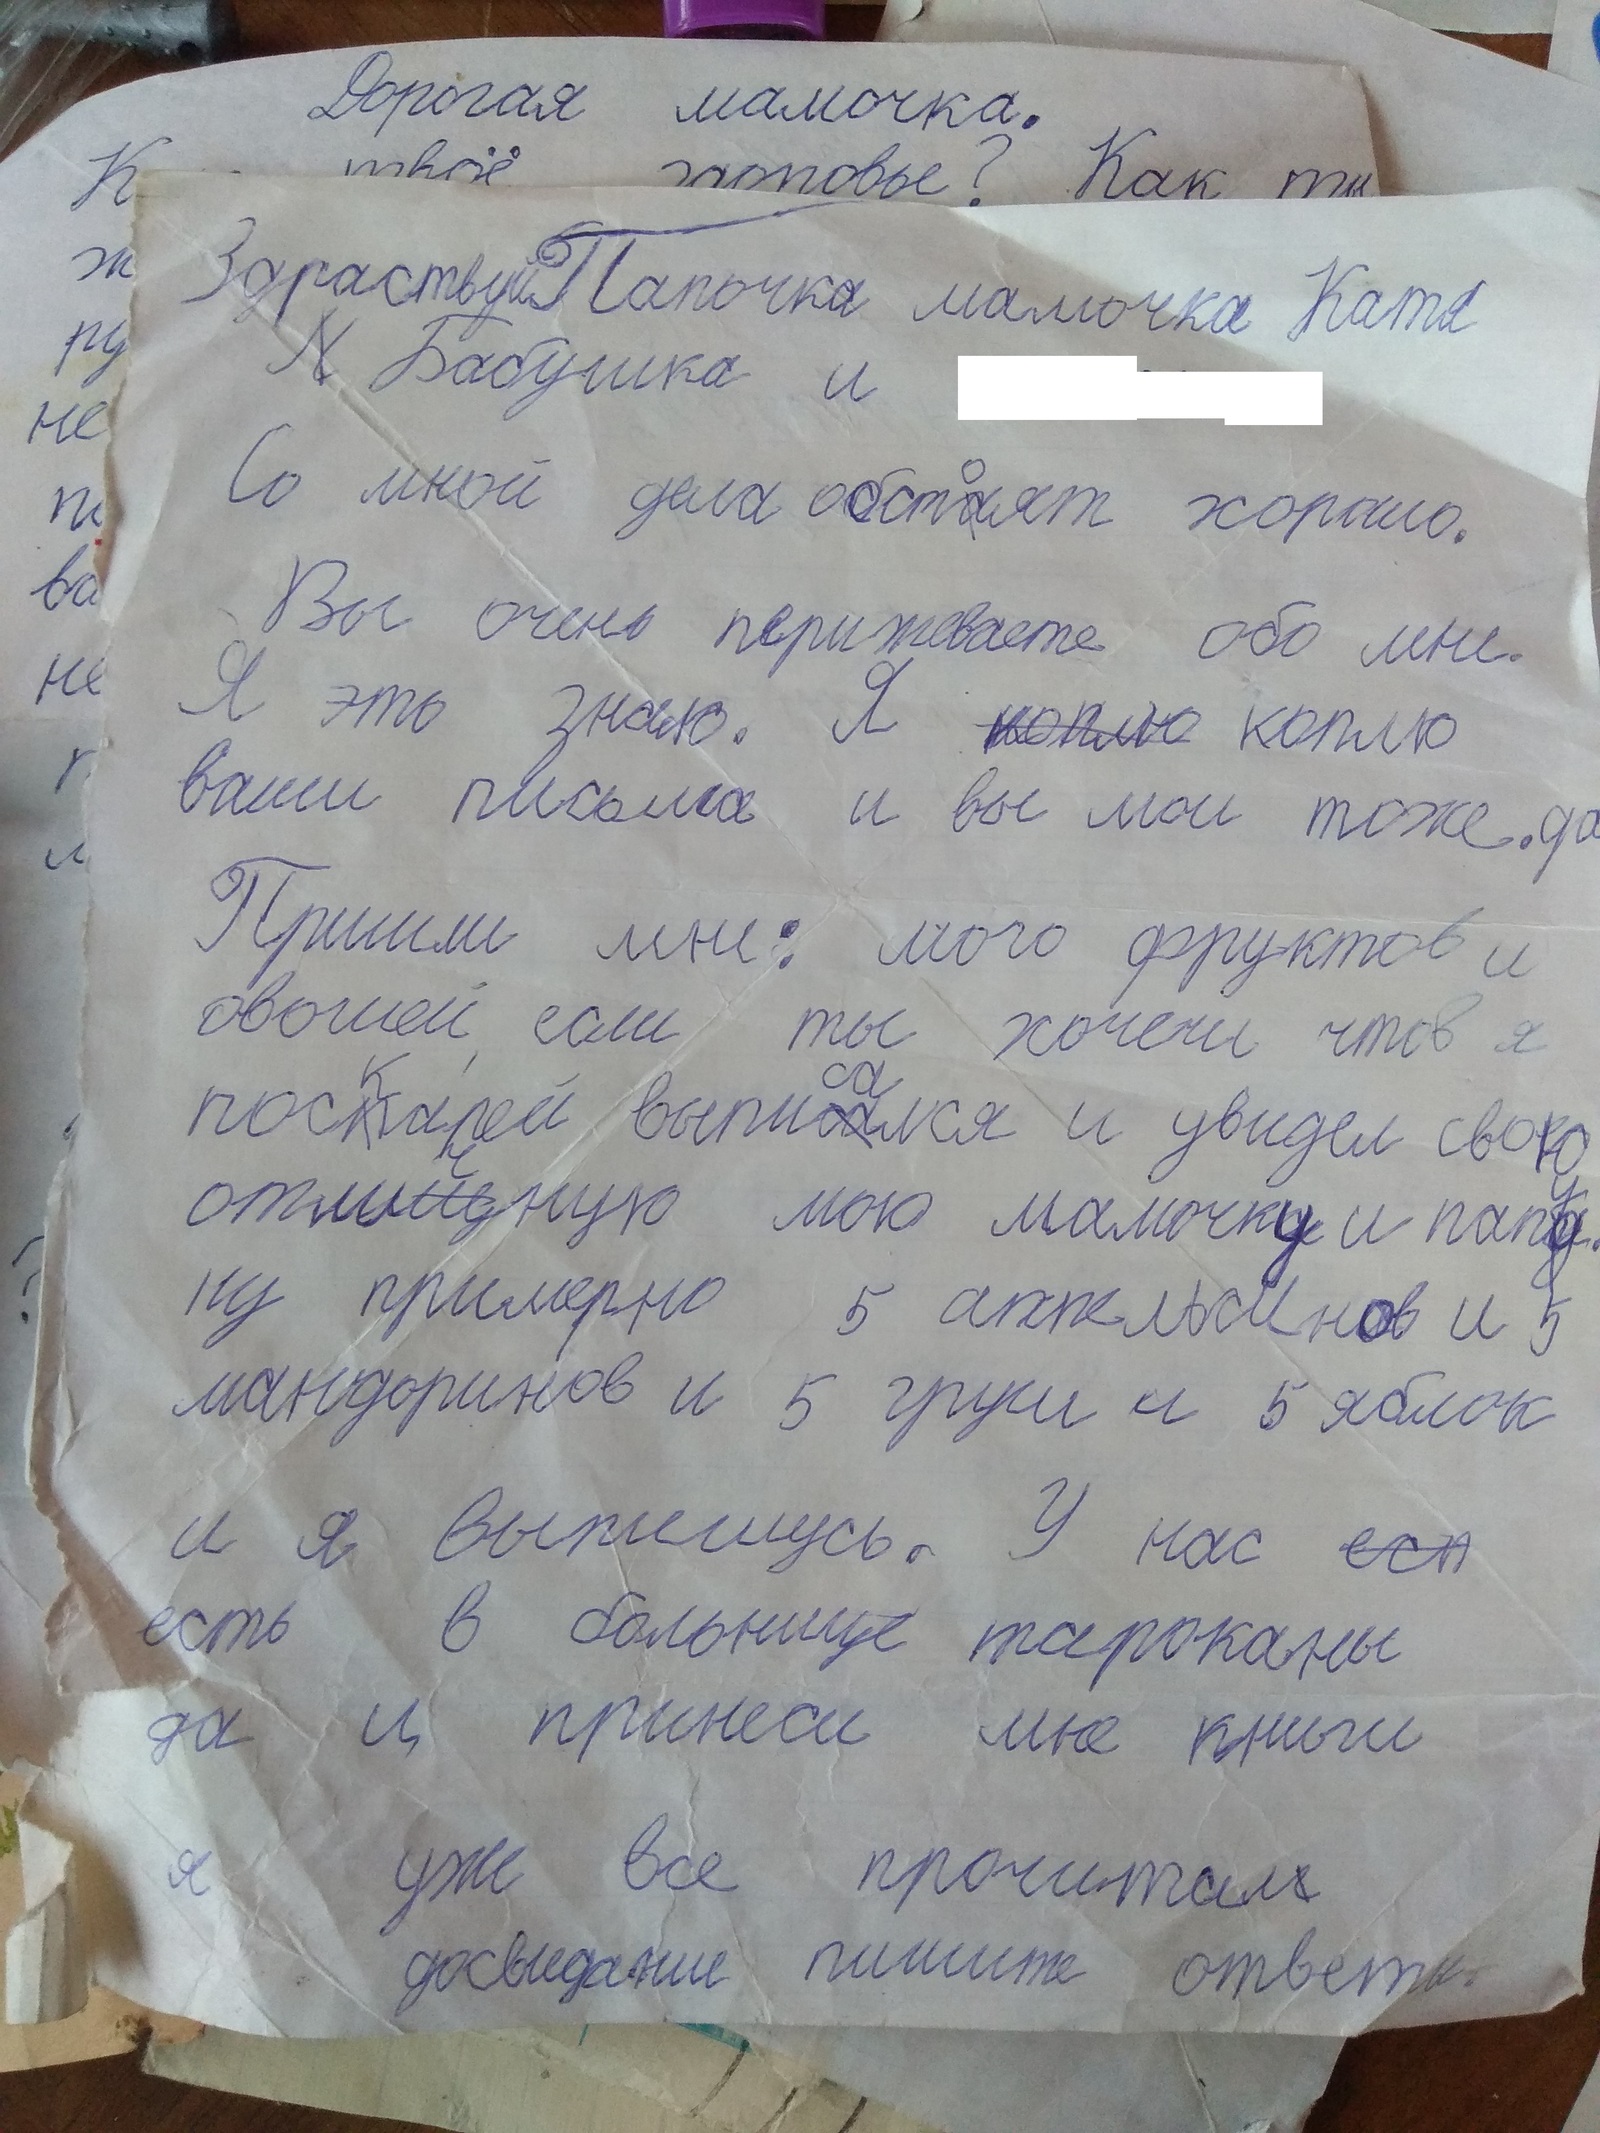 Дорогая мамочка.
твоё здоровье? Как ты
Здраствуй Папочка мамочка Катя
Бабушка и
Со мной дела обстоят хорошо.
Вы очень перижеваете обо мне.
Я это знаю. Я коплю коплю
ваши письма и вы мои тоже. да
Пришли мне: мого фруктов и
овошей, если ты хочеш чтов я
поскарей выписался и увидел свою
отличную мою мамочку и папу.
ну примерно 5 аппельсинов и 5
мандоринов и 5 груш и 5 яблок
и я выпишусь. У нас есп
есть в больнице тороканы
да и принеси мне книги
я уже все прочитал
досвидание пишите ответы.